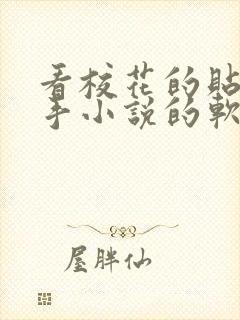 看校花的貼
手小說的軟
屋胖仙